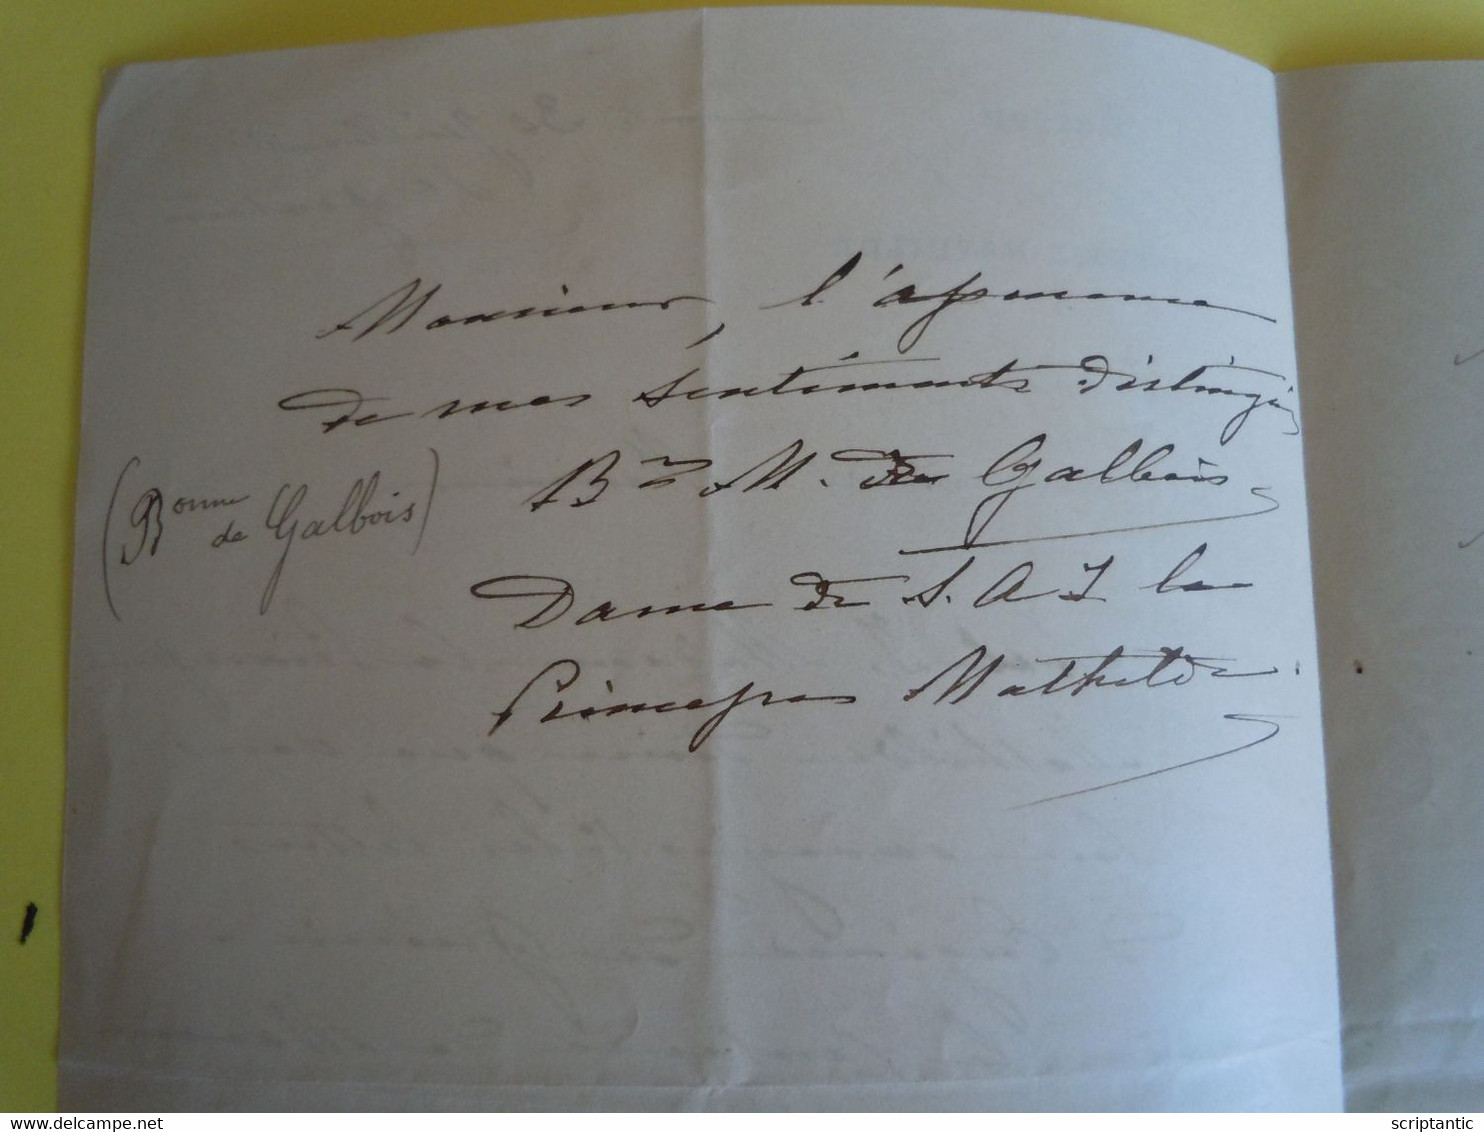 Monsieur, l'assurance
de mes sentiments distingués
Bne M. de Galbois
(Bonne
de Galbois)
Dame de S. A I la
Princesse Mathilde.
scriptantic